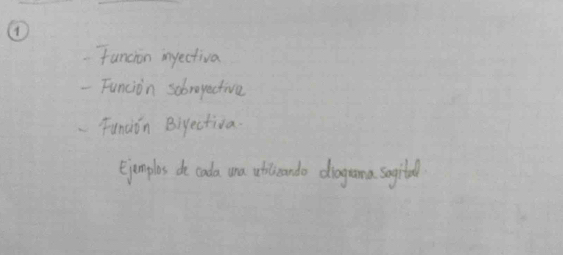 1
- Función inyectiva
- Función sobreyectiva
- Función Biyectiva.
Ejemplos de cada una utilizando diagrama sagital.